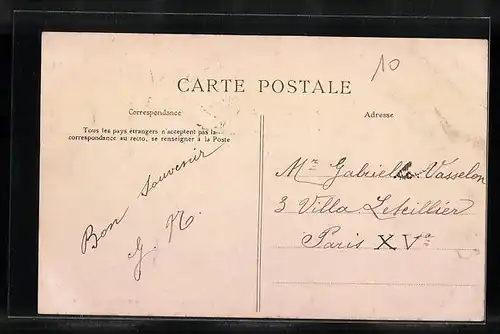 10
CARTE POSTALE
Correspondance
Tous les pays étrangers n'acceptent pas la
correspondance au recto, se renseigner à la Poste
Bon souvenir
G. N.
Adresse
Mr Gabriel Vasselon
3 Villa Letellier
Paris XV